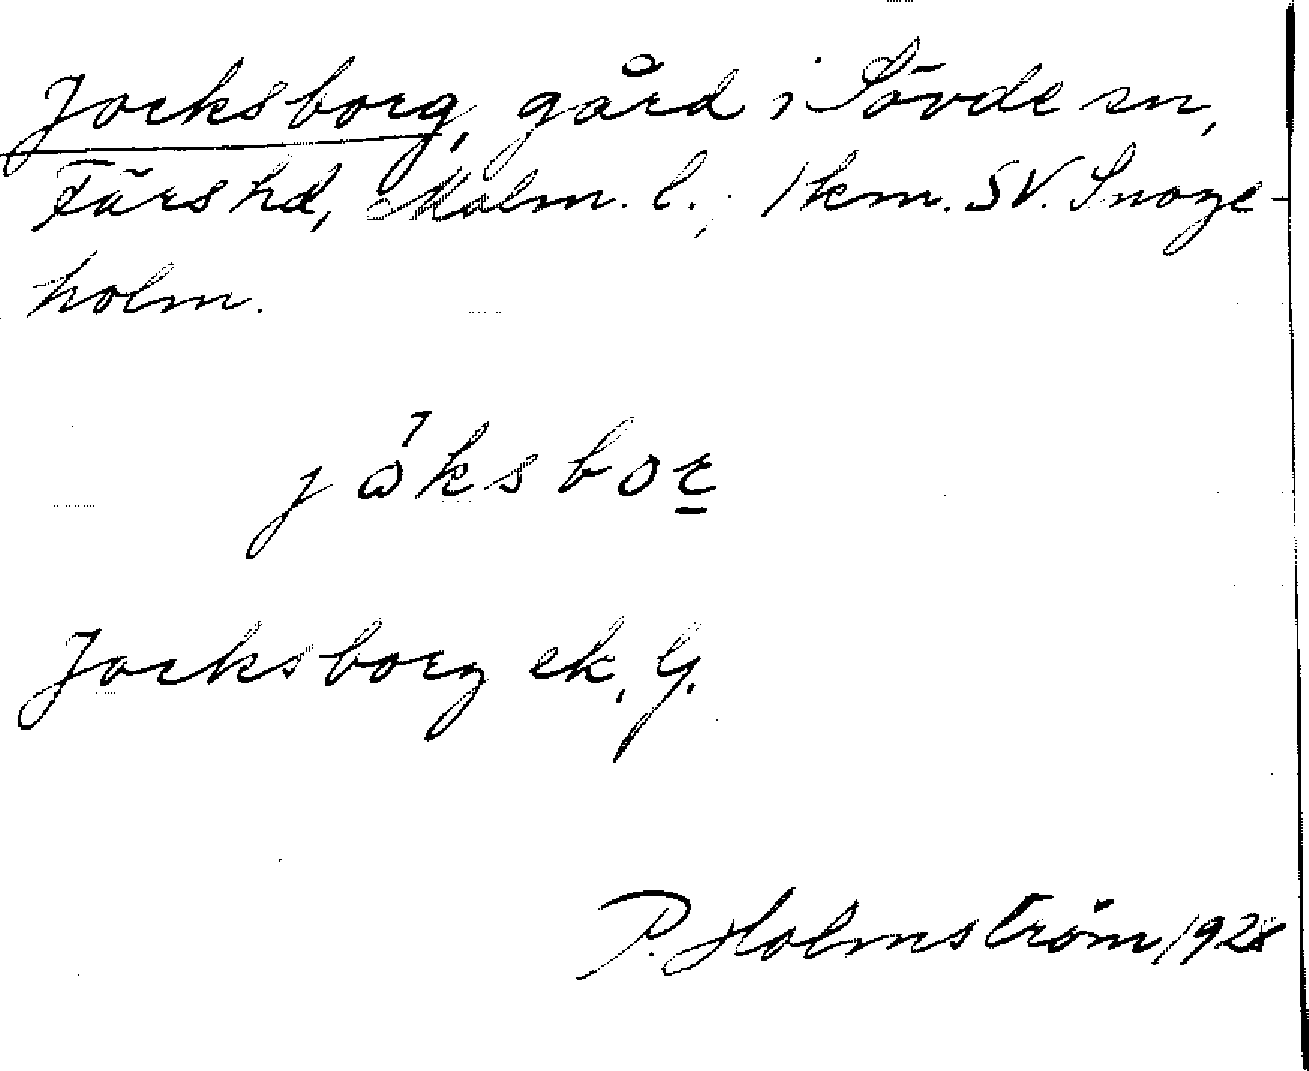 Jocksborg, gård i Sövde sn,
Färs hd, Malm. l.; 1 km. SV. Snoge-
holm.
Jocksborg ek. G.
P. Holmström 1928